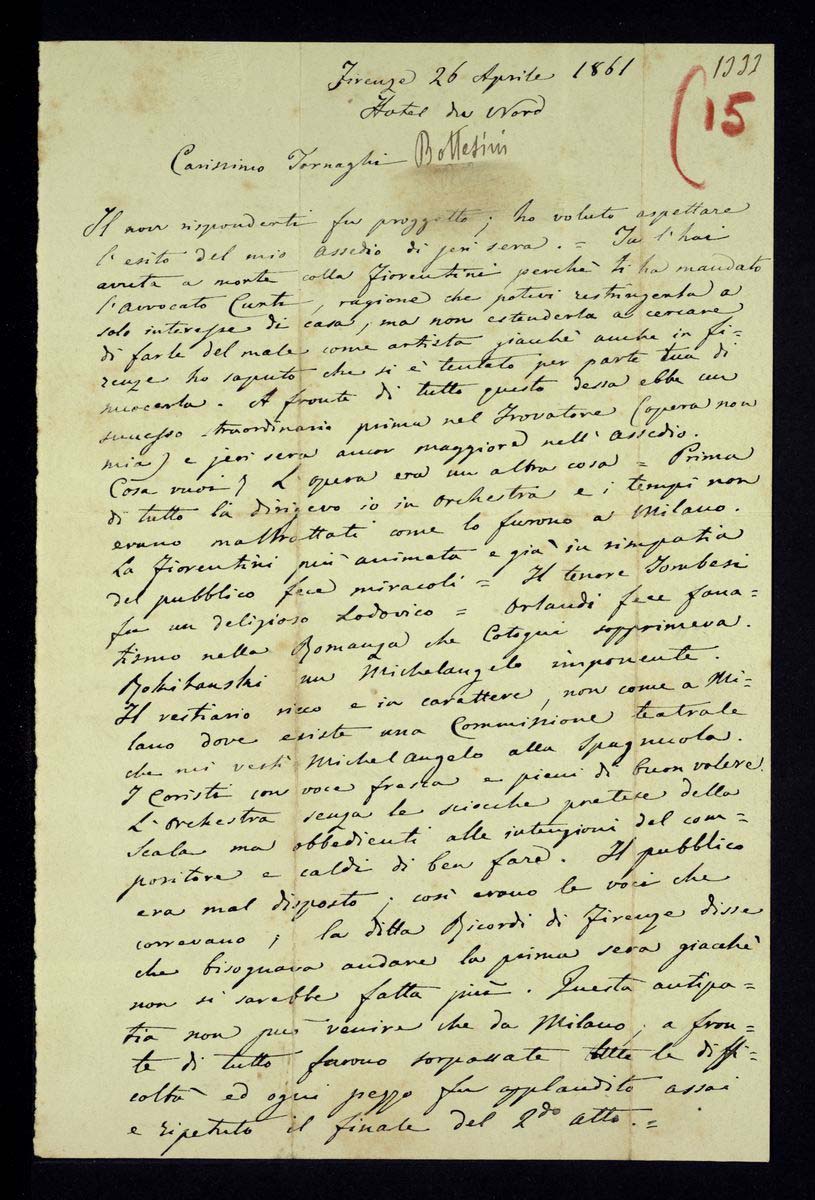 1333
(15
Firenze 26 Aprile 1861
Hotel du Nord
Carissimo Tornaghi Bottesini
Il non risponderti fu proggetto; ho voluto aspettare
l'esito del mio Assedio di jeri sera. = Tu l'hai
avuta a morte colla Fiorentini perchè ti ha mandato
l'avvocato Curti, ragione che potevi restringerla a
solo interesse di casa, ma non estenderla a cercare
di farle del male come artista giacchè anche in Fi=
renze ho saputo che si è tentato per parte tua di
nuocerla. A fronte di tutto questo dessa ebbe un
successo straordinario prima nel Trovatore (opera non
mia) e jeri sera ancor maggiore nell'assedio.
Cosa vuoi? L'opera era un altra cosa = Prima
di tutto la dirigevo io in orchestra e i tempi non
erano maltrattati come lo furono a Milano.
La Fiorentini più animata e già in simpatia
del pubblico fece miracoli = Il tenore Tombesi
fu un deligioso Lodovico = Orlandi fece fana=
tismo nella Romanza che Cotogni sopprimeva.
Bokihanski un Michelangelo imponente.
Il vestiario ricco e in carattere, non come a Mi=
lano dove esiste una Commissione teatrale
che mi vestì Michelangelo alla Spagnuola.
I Coristi con voce fresca e pieni di buon volere.
L'Orchestra senza le sciocche pretese della
Scala ma obbedienti alle intenzioni del com=
positore e caldi di ben fare. Il pubblico
era mal disposto; così erano le voci che
correvano; la ditta Ricordi di Firenze disse
che bisognava andare la prima sera giacchè
non si sarebbe fatta più. Questa antipa=
tia non può venire che da Milano; a fron=
te di tutto furono sorpassate tutte le diffi=
coltà ed ogni pezzo fu applaudito assai
e ripetuto il finale del 2do atto. =